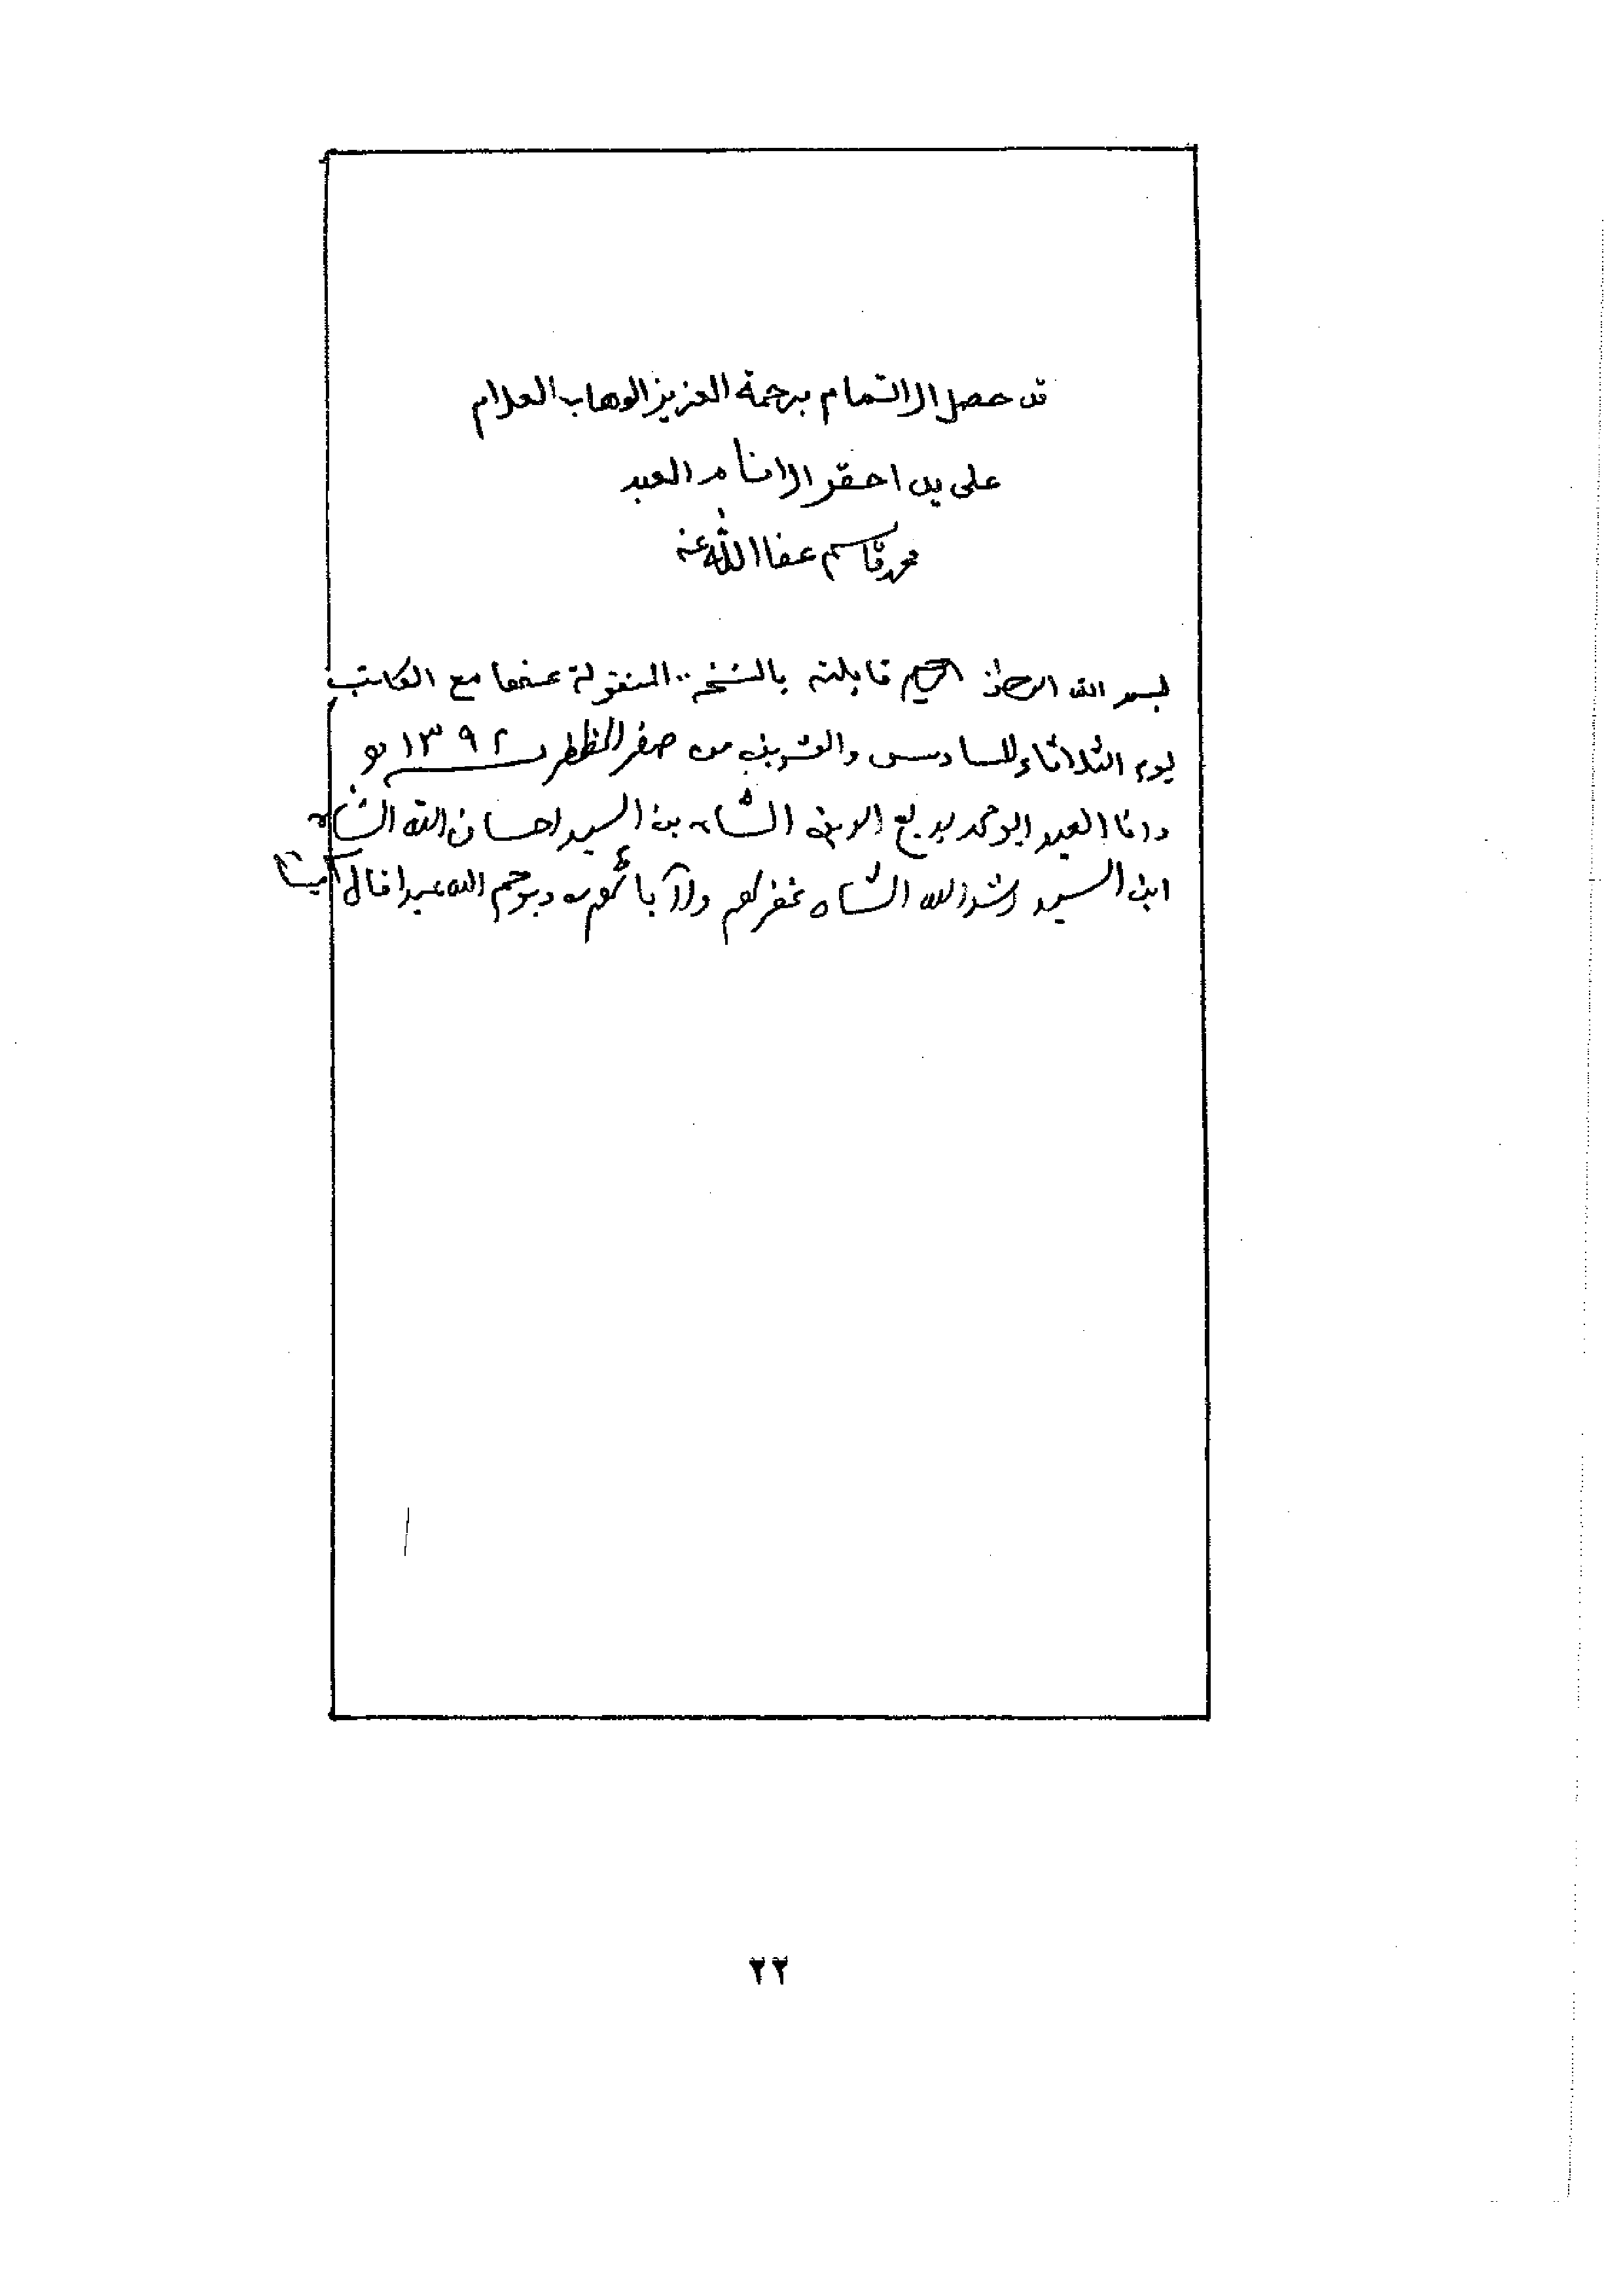 قد حصل الاتمام برحمة العزيز الوهاب العلام
على يد احقر الانام العبد
محمد قاسم عفا الله عنه
بسم الله الرحمن الرحيم قابلته بالنسخة المنقولة عنها مع الكاتب
يوم الثلاثاء للسادس والعشرين من صفر المظفر ١٣٩٢
وانا العبد ابو محمد بديع الدين الشاه بن السيد احسان الله الشاه
ابن السيد رشد الله الشاه غفر لهم ولآبائهم ويرحم الله عبدا قال آمينا
٢٢